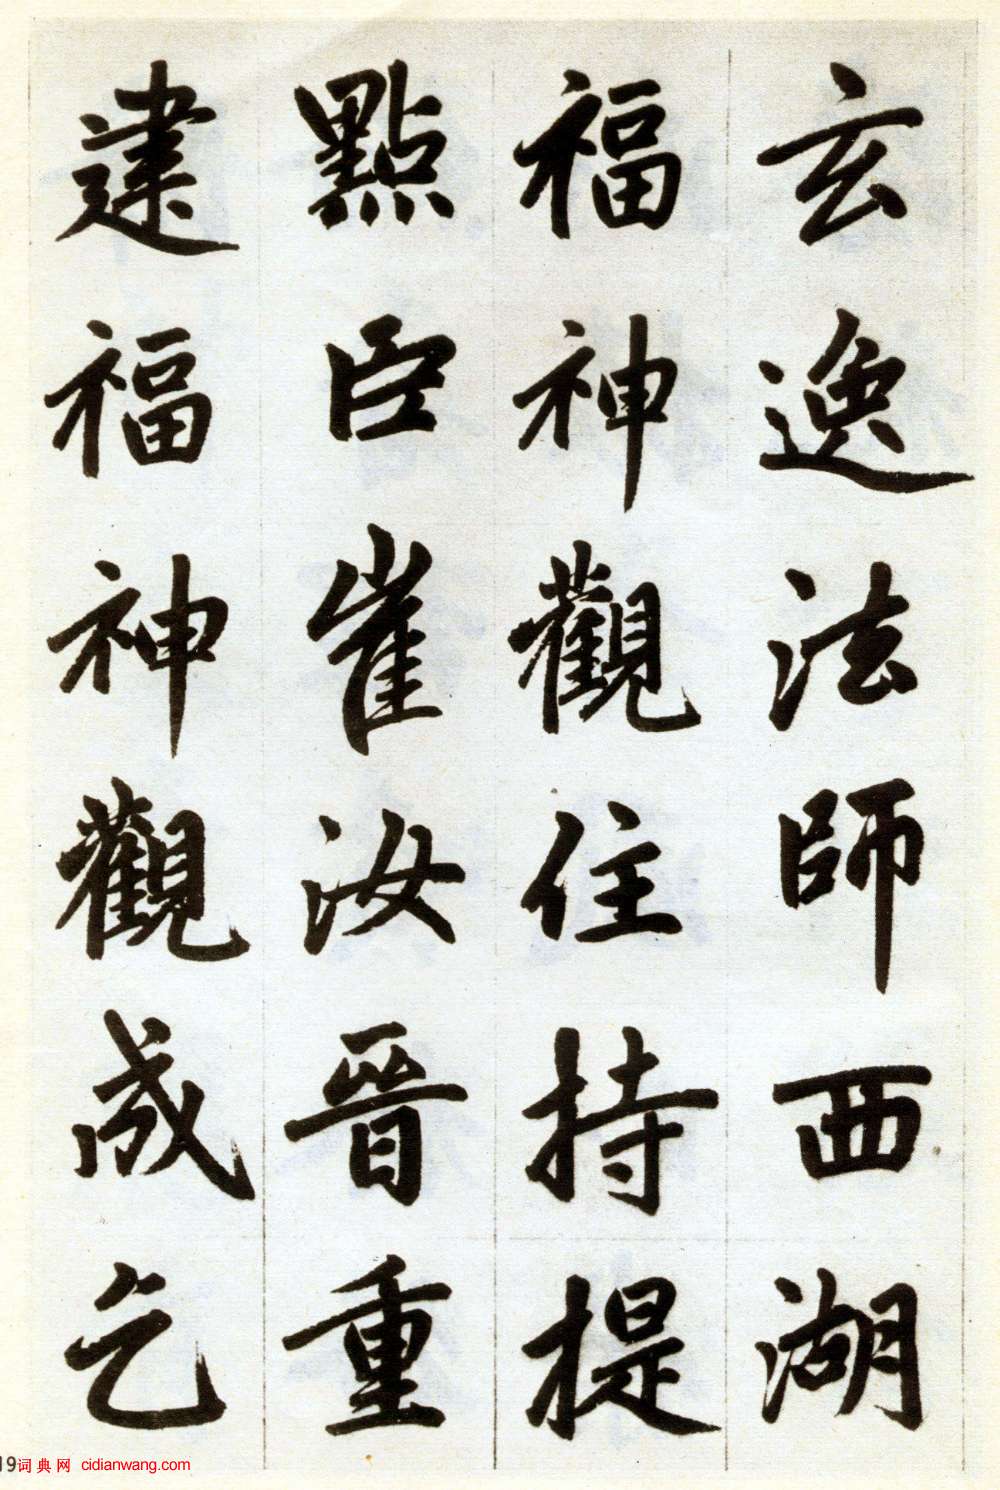 玄逸法師西湖
福神觀住持提
點臣崔汝晉重
建福神觀成乞
19词典网 cidianwang.com